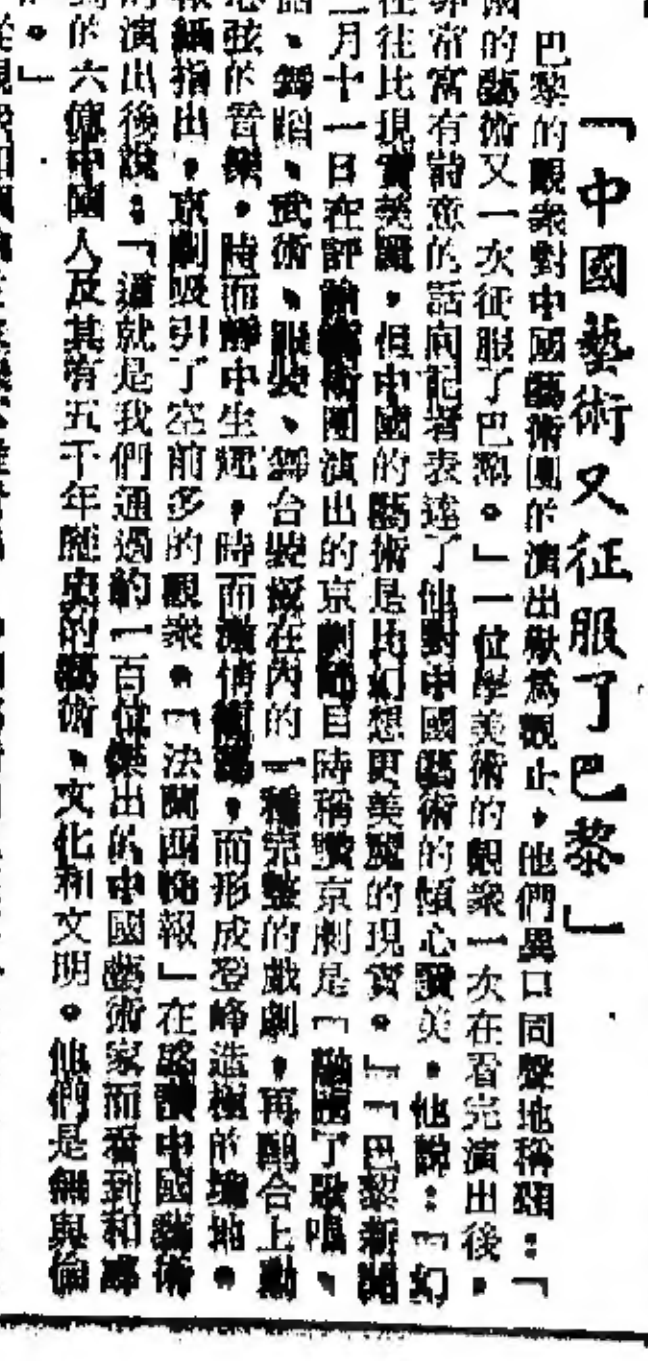 「中國藝術又征服了巴黎」
巴黎的觀衆對中國藝術團的演出歎爲觀止，他們異口同聲地稱頌：「
的藝術又一次征服了巴黎。」一位學美術的觀衆一次在看完演出後，
常富有詩意的話向記者表達了他對中國藝術的傾心讚美。他說：「幻
往比現實美麗，但中國的藝術是比幻想更美麗的現實。」「巴黎新聞
月十一日在評論藝術團演出的京劇節目時稱讚京劇是「融匯了歌唱、
、舞蹈、武術、服裝、舞台裝㨫在內的一種完整的戲劇，再配合上動
弦的音樂，時而靜中生，時而激情，而形成登峰造極的境地。
紙指出，京劇吸引了空前多的觀衆。「法蘭西晚報」在中國藝術
演出後說：「這就是我們通過的一百位傑出的中國藝術家而看到和
的六億中國人及其有五千年歷史的藝術、文化和文明。他們是無與倫
。」